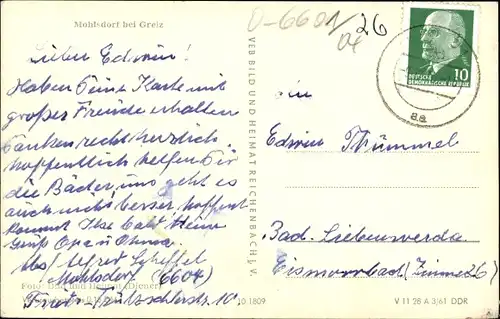 Mohlsdorf bei Greiz
D-6601/04
26
Lieber Edwin!
Haben Deine Karte mit
großer Freude erhalten
Danken recht herzlich
hoffentlich helfen Dir
die Bäder, uns geht es
auch nicht besser hoffent
kommt Ilse bald
Gruß Opa u Oma.
Abs/Alfred Scheffel
Mohlsdorf (6604)
Fritz-Schlosserstr. 10
Foto: Bild und Heimat (Diener)
10 1809
VEB BILD UND HEIMAT REICHENBACH i. V.
DEUTSCHE
DEMOKRATISCHE REPUBLIK
10
aa
Edwin Thümmel
Bad-Liebenwerda
Eismoorbad (Zimmer 26)
V 11 28 A 3/61 DDR